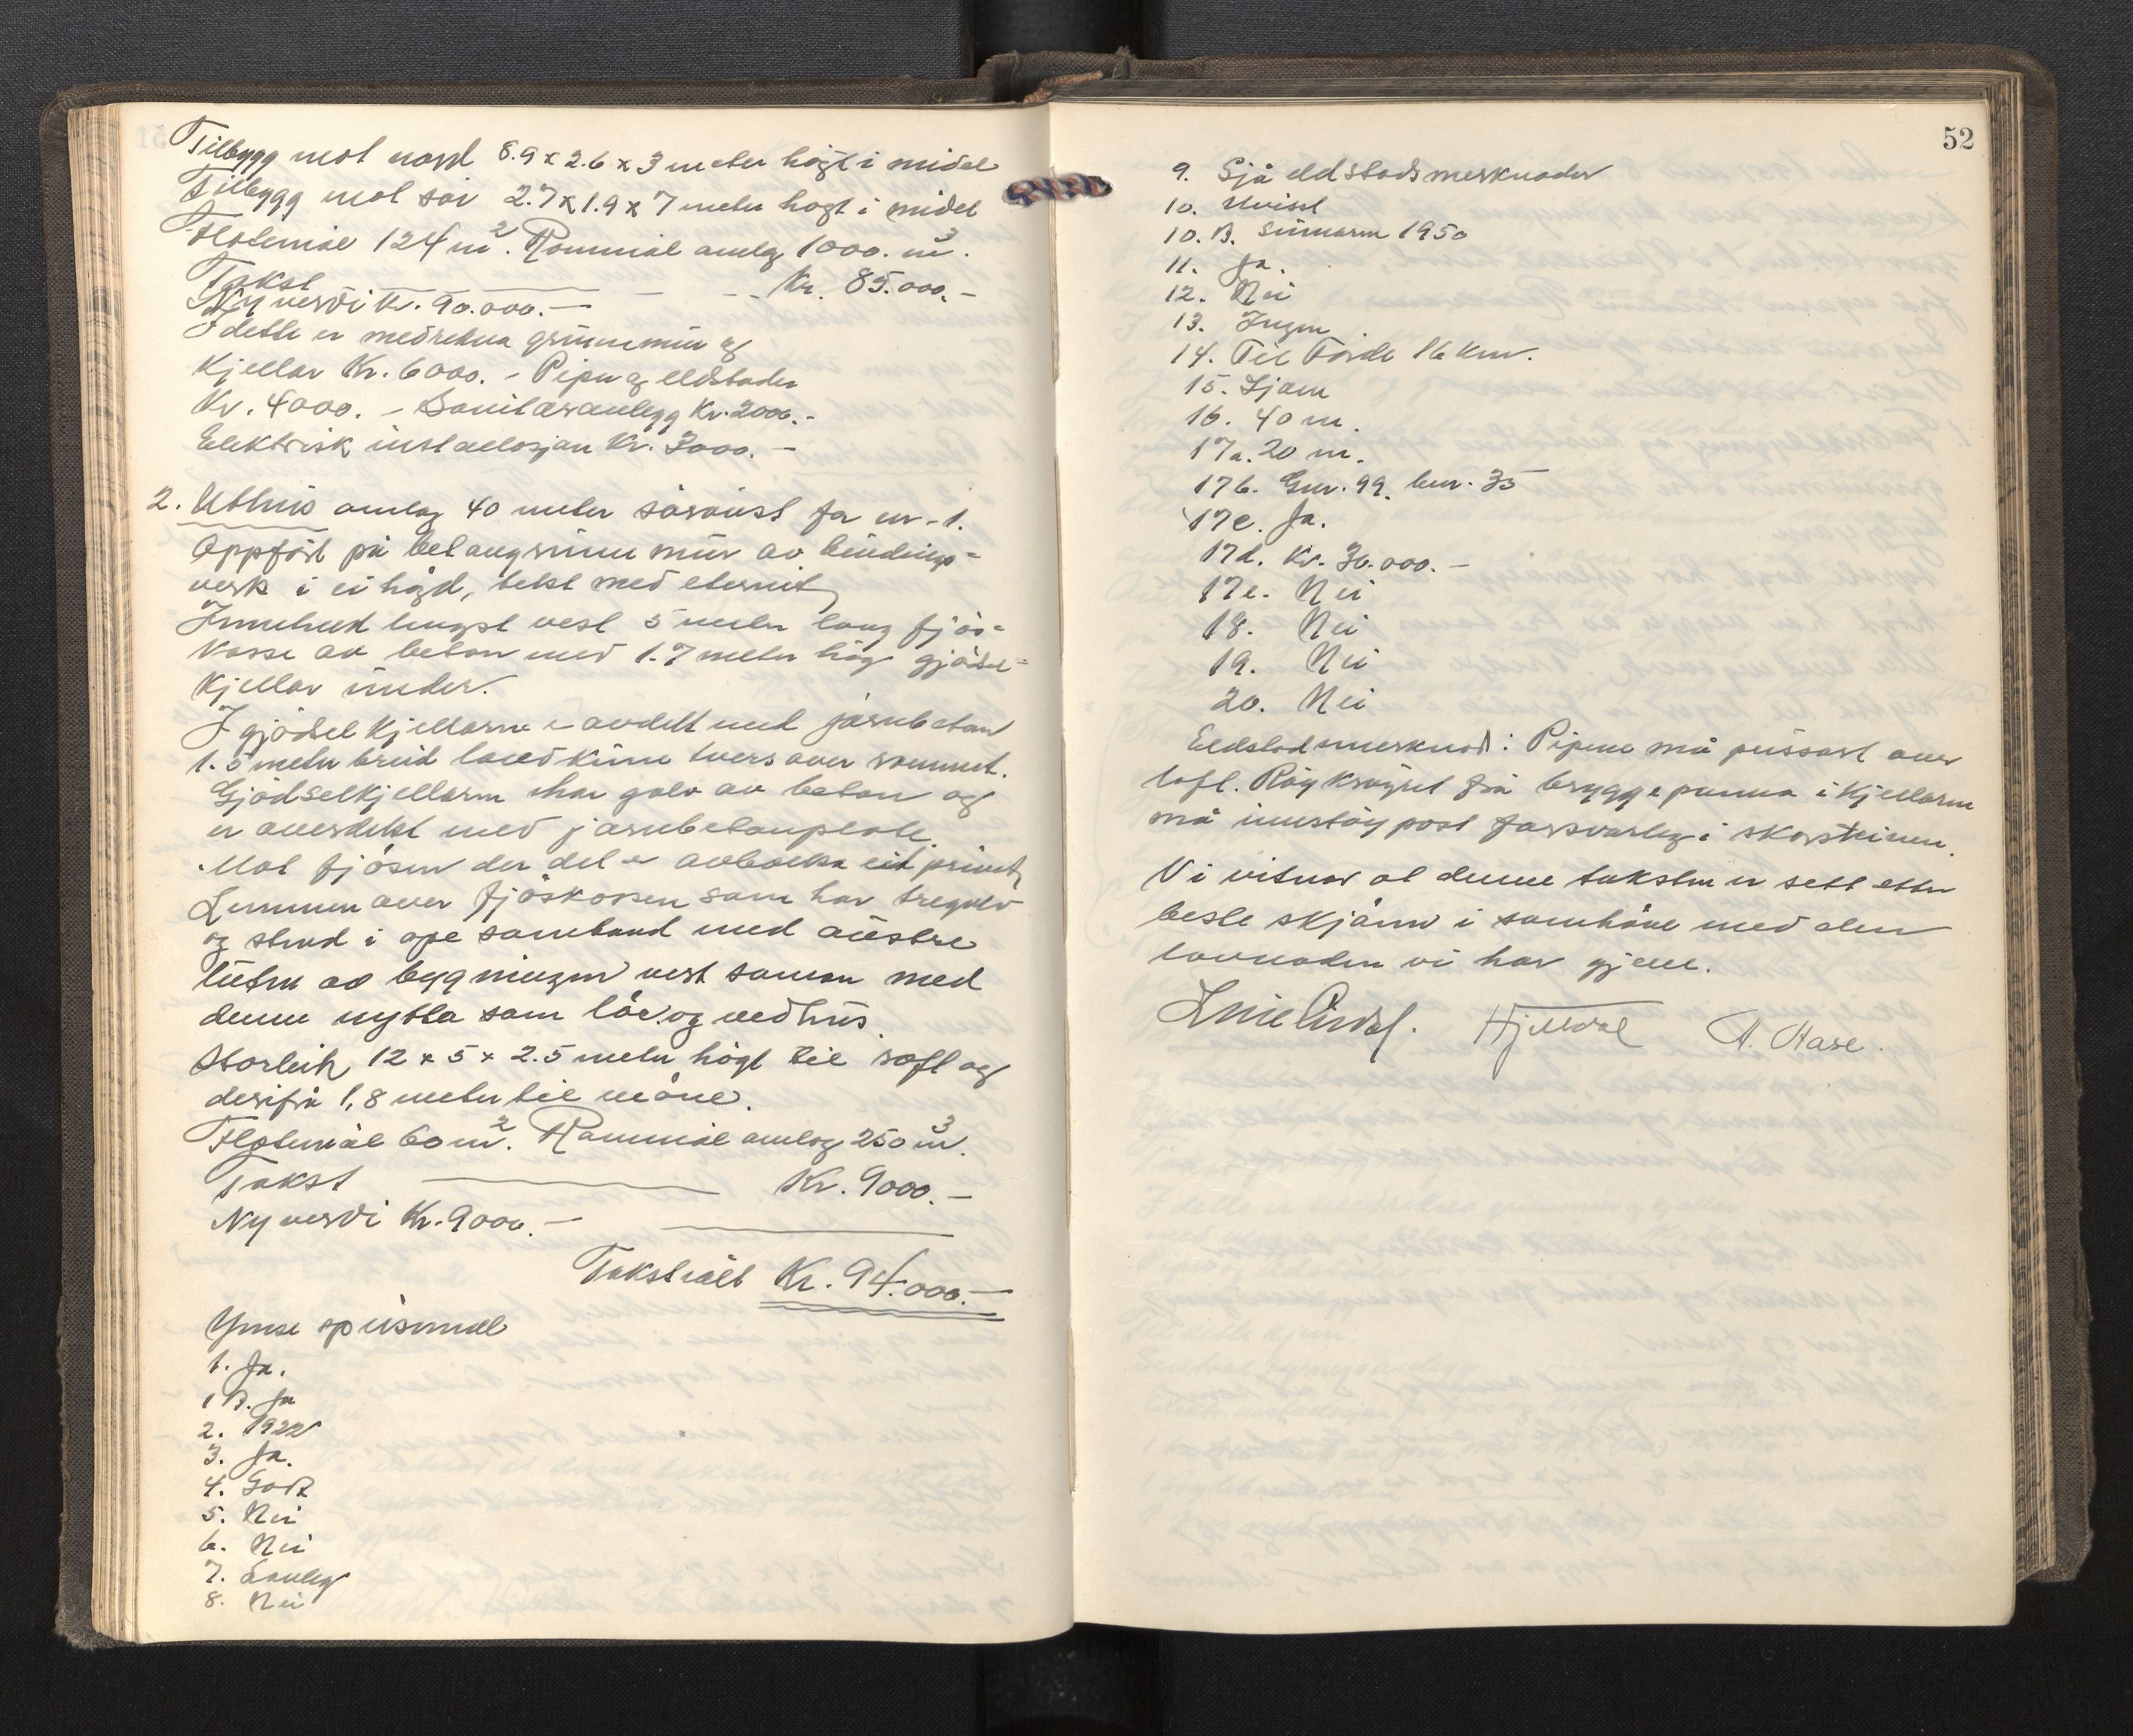 Tilbygg mot nord 8.9 x 2.6 x 3 meter högt i midel
Tilbygg mot sör 2.7 x 1.9 x 7 meter högt i midel
Flatemål 124 m². Rommål omlag 1000. m³.
Takst — — — Kr. 85.000.-
Ny verdi Kr. 90.000.—
I dette er medrekna grunnmur og
Kjellar Kr. 6000. - Pipe og eldstader
Kr. 4000. - Sanitæranlegg Kr. 2000.-
Elektrisk installasjon Kr. 3000.-
2. Uthus omlag 40 meter söraust for nr. 1.
Oppfört på betongrunnmur av bindings=
verk i ei högd, tekt med eternit
Inneheld lengst vest 5 meter lang fjös=
kasse av betong med 1.7 meter hög gjödsel=
kjellar under.
I gjödselkjellaren er avdelt med jarnbetong
1.5 meter breid landkum tvers over rommet.
Gjödselkjellaren har golv av betong og
er overdekt med jarnbetongplate.
Mot fjösen der det er avbalka eit privet,
Lemmen over fjöskassen som har tregolv
og stend i ope samband med austre
luten av bygningen vert saman med
denne nytta som låve og vedhus.
Storleik 12 x 5 x 2.5 meter högt til raft og
derifrå 1,8 meter til möne.
Flatemål 60 m². Rommål omlag 250 m³.
Takst ——— Kr. 9000.—
Ny verdi Kr. 9000.—
Takst i alt Kr. 94.000.—
Ymse spursmål
1. Ja.
1 B. Ja
2. 1922
3. Ja.
4. Godt
5. Nei
6. Nei
7. Lauleg
8. Nei
52
9. Sjå eldstadsmerknader
10. Uvisst
10. B. Sumaren 1950
11. Ja.
12. Nei
13. Ingen
14. Til Förde 16 km.
15. Ljom
16. 40 m.
17a. 20 m.
17b. Gnr. 99. bnr. 35
17c. Ja.
17d. Kr. 30.000.-
17e. Nei
18. Nei
19. Nei
20. Nei
Eldstadmerknad: Pipene må pussast over
loft. Röykröyret frå bryggepanna i kjellaren
må innstöypast forsvarleg i skorsteinen.
Vi vitnar at denne taksten er sett etter
beste skjönn i samhöve med den
lovnaden vi har gjeve.
Hjelldal A. Aase.